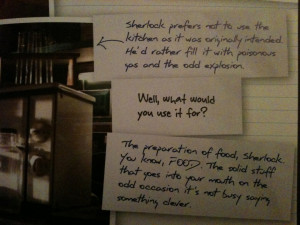 Sherlock prefers not to use the
kitchen as it was originally intended.
He'd rather fill it with poisonous
gas and the odd explosion.
Well, what would
you use it for?
The preparation of food, Sherlock.
You know, FOOD. The solid stuff
that goes into your mouth on the
odd occasion it's not busy saying
something clever.